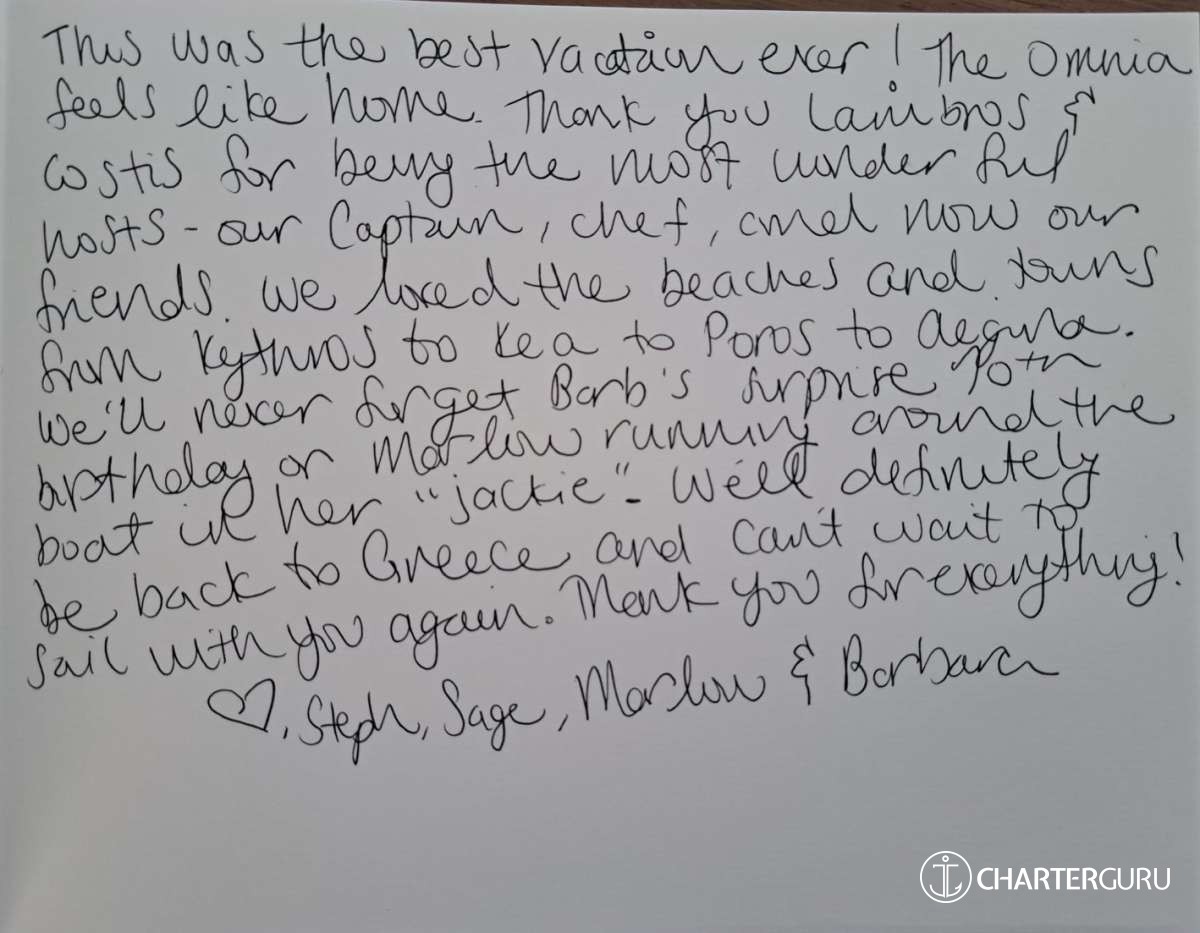 This was the best vacation ever! The Omnia
feels like home. Thank you Lambros &
Costis for being the most wonderful
hosts - our Captain, chef, and now our
friends. We loved the beaches and towns
from Kythnos to Kea to Poros to Aegina.
We'll never forget Barb's surprise 70th
birthday or Marlow running around the
boat in her "jackie". We'll definitely
be back to Greece and can't wait to
sail with you again. Thank you for everything!
♡, Steph, Sage, Marlow & Barbara
CHARTERGURU